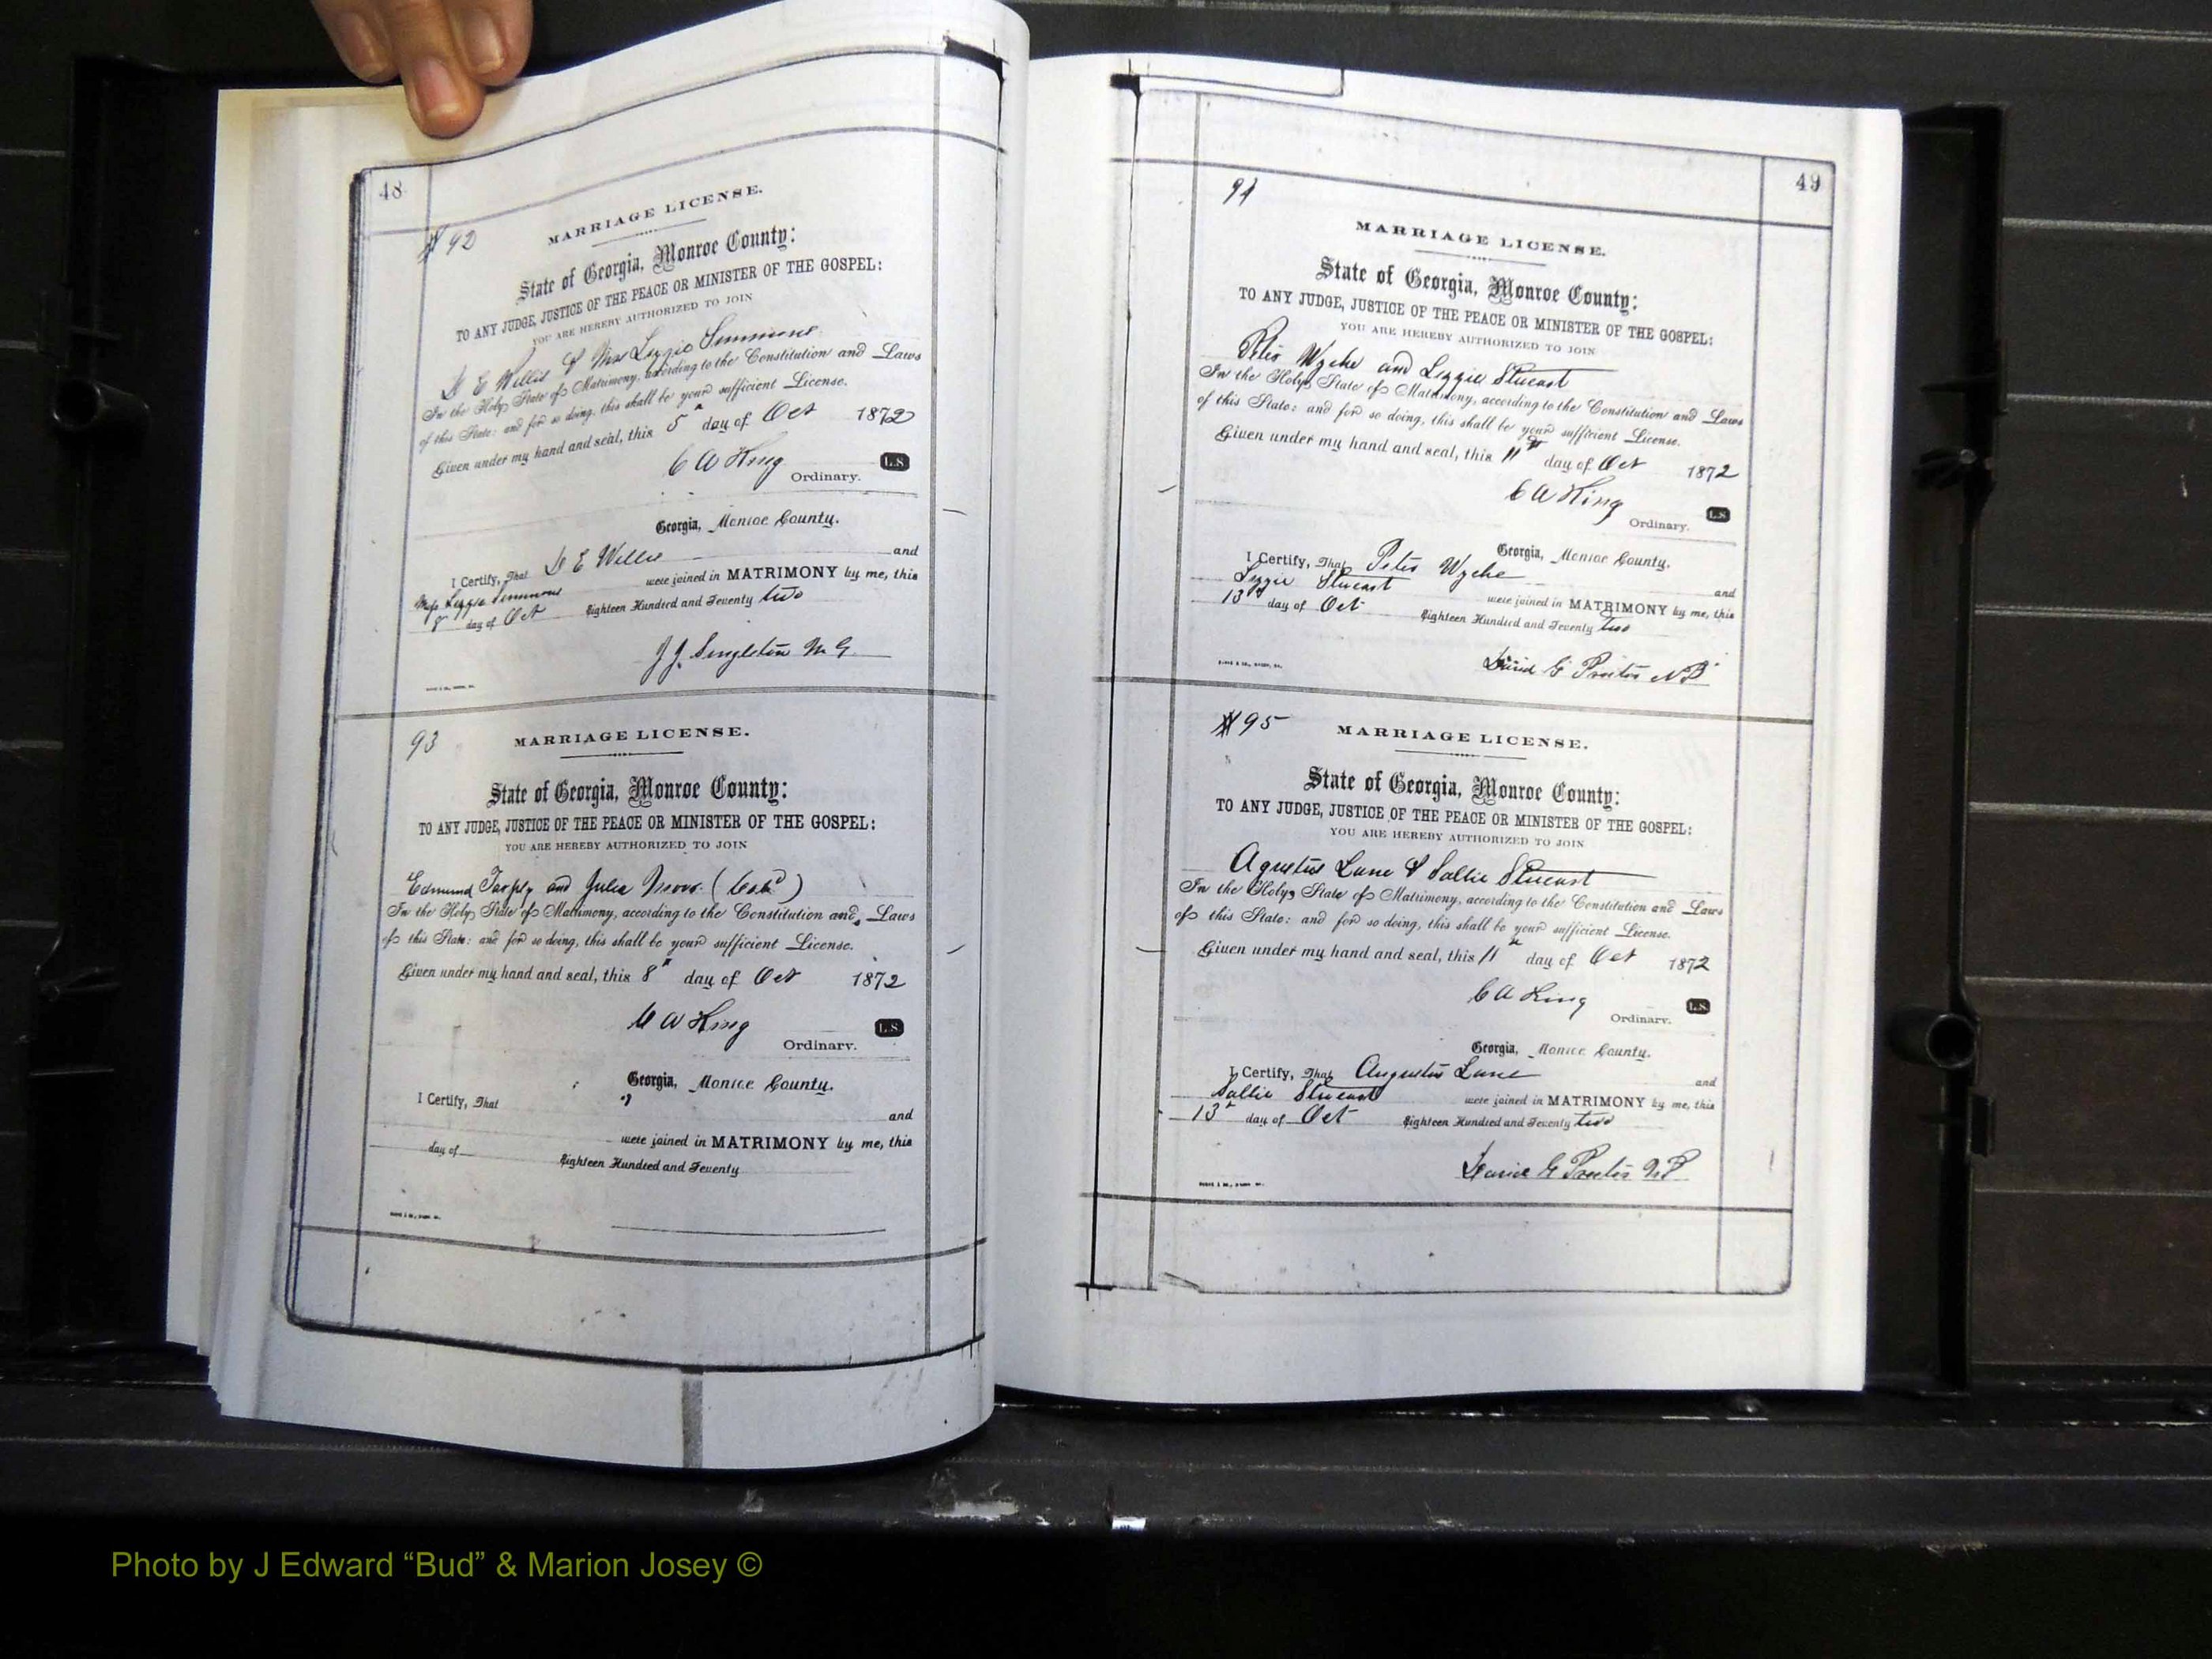 48
# 92
MARRIAGE LICENSE.
State of Georgia, Monroe County:
TO ANY JUDGE, JUSTICE OF THE PEACE OR MINISTER OF THE GOSPEL:
YOU ARE HEREBY AUTHORIZED TO JOIN
D E Willis & Miss Lizzie Simmons
In the Holy State of Matrimony, according to the Constitution and Laws
of this State: and for so doing, this shall be your sufficient License.
Given under my hand and seal, this 5" day of Oct 1872
C A King L.S.
Ordinary.
Georgia, Monroe County.
I Certify, That D E Willis and
Miss Lizzie Simmons were joined in MATRIMONY by me, this
8" day of Oct Eighteen Hundred and Seventy two
J J Singleton M G
93
MARRIAGE LICENSE.
State of Georgia, Monroe County:
TO ANY JUDGE, JUSTICE OF THE PEACE OR MINISTER OF THE GOSPEL:
YOU ARE HEREBY AUTHORIZED TO JOIN
Edmund Tarply and Julia (Cold)
In the Holy State of Matrimony, according to the Constitution and Laws
of this State: and for so doing, this shall be your sufficient License.
Given under my hand and seal, this 8" day of Oct 1872
C A King L.S.
Ordinary.
Georgia, Monroe County.
I Certify, That
and
were joined in MATRIMONY by me, this
day of Eighteen Hundred and Seventy
49
94
MARRIAGE LICENSE.
State of Georgia, Monroe County:
TO ANY JUDGE, JUSTICE OF THE PEACE OR MINISTER OF THE GOSPEL:
YOU ARE HEREBY AUTHORIZED TO JOIN
Peter Wyche and Lizzie Stueart
In the Holy State of Matrimony, according to the Constitution and Laws
of this State: and for so doing, this shall be your sufficient License.
Given under my hand and seal, this 11th day of Oct 1872
C A King L.S.
Ordinary.
Georgia, Monroe County.
I Certify, That Peter Wyche and
Lizzie Stueart were joined in MATRIMONY by me, this
13th day of Oct Eighteen Hundred and Seventy two
David G Proctor N P
# 95
MARRIAGE LICENSE.
State of Georgia, Monroe County:
TO ANY JUDGE, JUSTICE OF THE PEACE OR MINISTER OF THE GOSPEL:
YOU ARE HEREBY AUTHORIZED TO JOIN
Agustus Lane & Sallie Stueart
In the Holy State of Matrimony, according to the Constitution and Laws
of this State: and for so doing, this shall be your sufficient License.
Given under my hand and seal, this 11th day of Oct 1872
C A King L.S.
Ordinary.
Georgia, Monroe County.
I Certify, That Augustus Lane and
Sallie Stueart were joined in MATRIMONY by me, this
13" day of Oct Eighteen Hundred and Seventy two
David G Proctor N P
Photo by J Edward “Bud” & Marion Josey ©